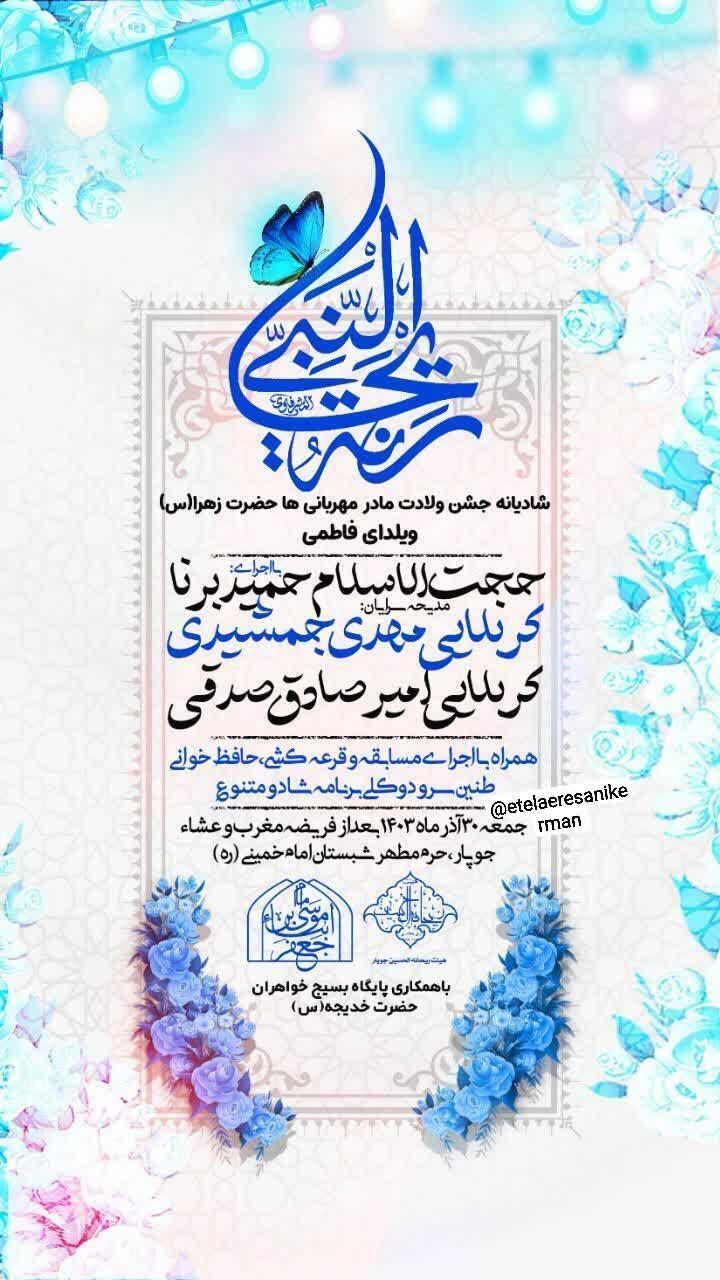 ریحانة النبی
شادیانه جشن ولادت مادر مهربانی ها حضرت زهرا(س)
ویلدای فاطمی
بااجرای:
حجت الاسلام حمید برنا
مدیحه سرایان:
کربلایی مهدی جمشیدی
کربلایی امیر صادق صدقی
همراه با اجرای مسابقه و قرعه کشی، حافظ خوانی
طنین سرود و کلی برنامه شاد و متنوع
@etelaeresanike
rman
جمعه ۳۰ آذر ماه ۱۴۰۳ بعد از فریضه مغرب و عشاء
جوپار، حرم مطهر شبستان امام خمینی (ره)
هیئت ریحانه الحسین جوپار
باهمکاری پایگاه بسیج خواهران
حضرت خدیجه(س)